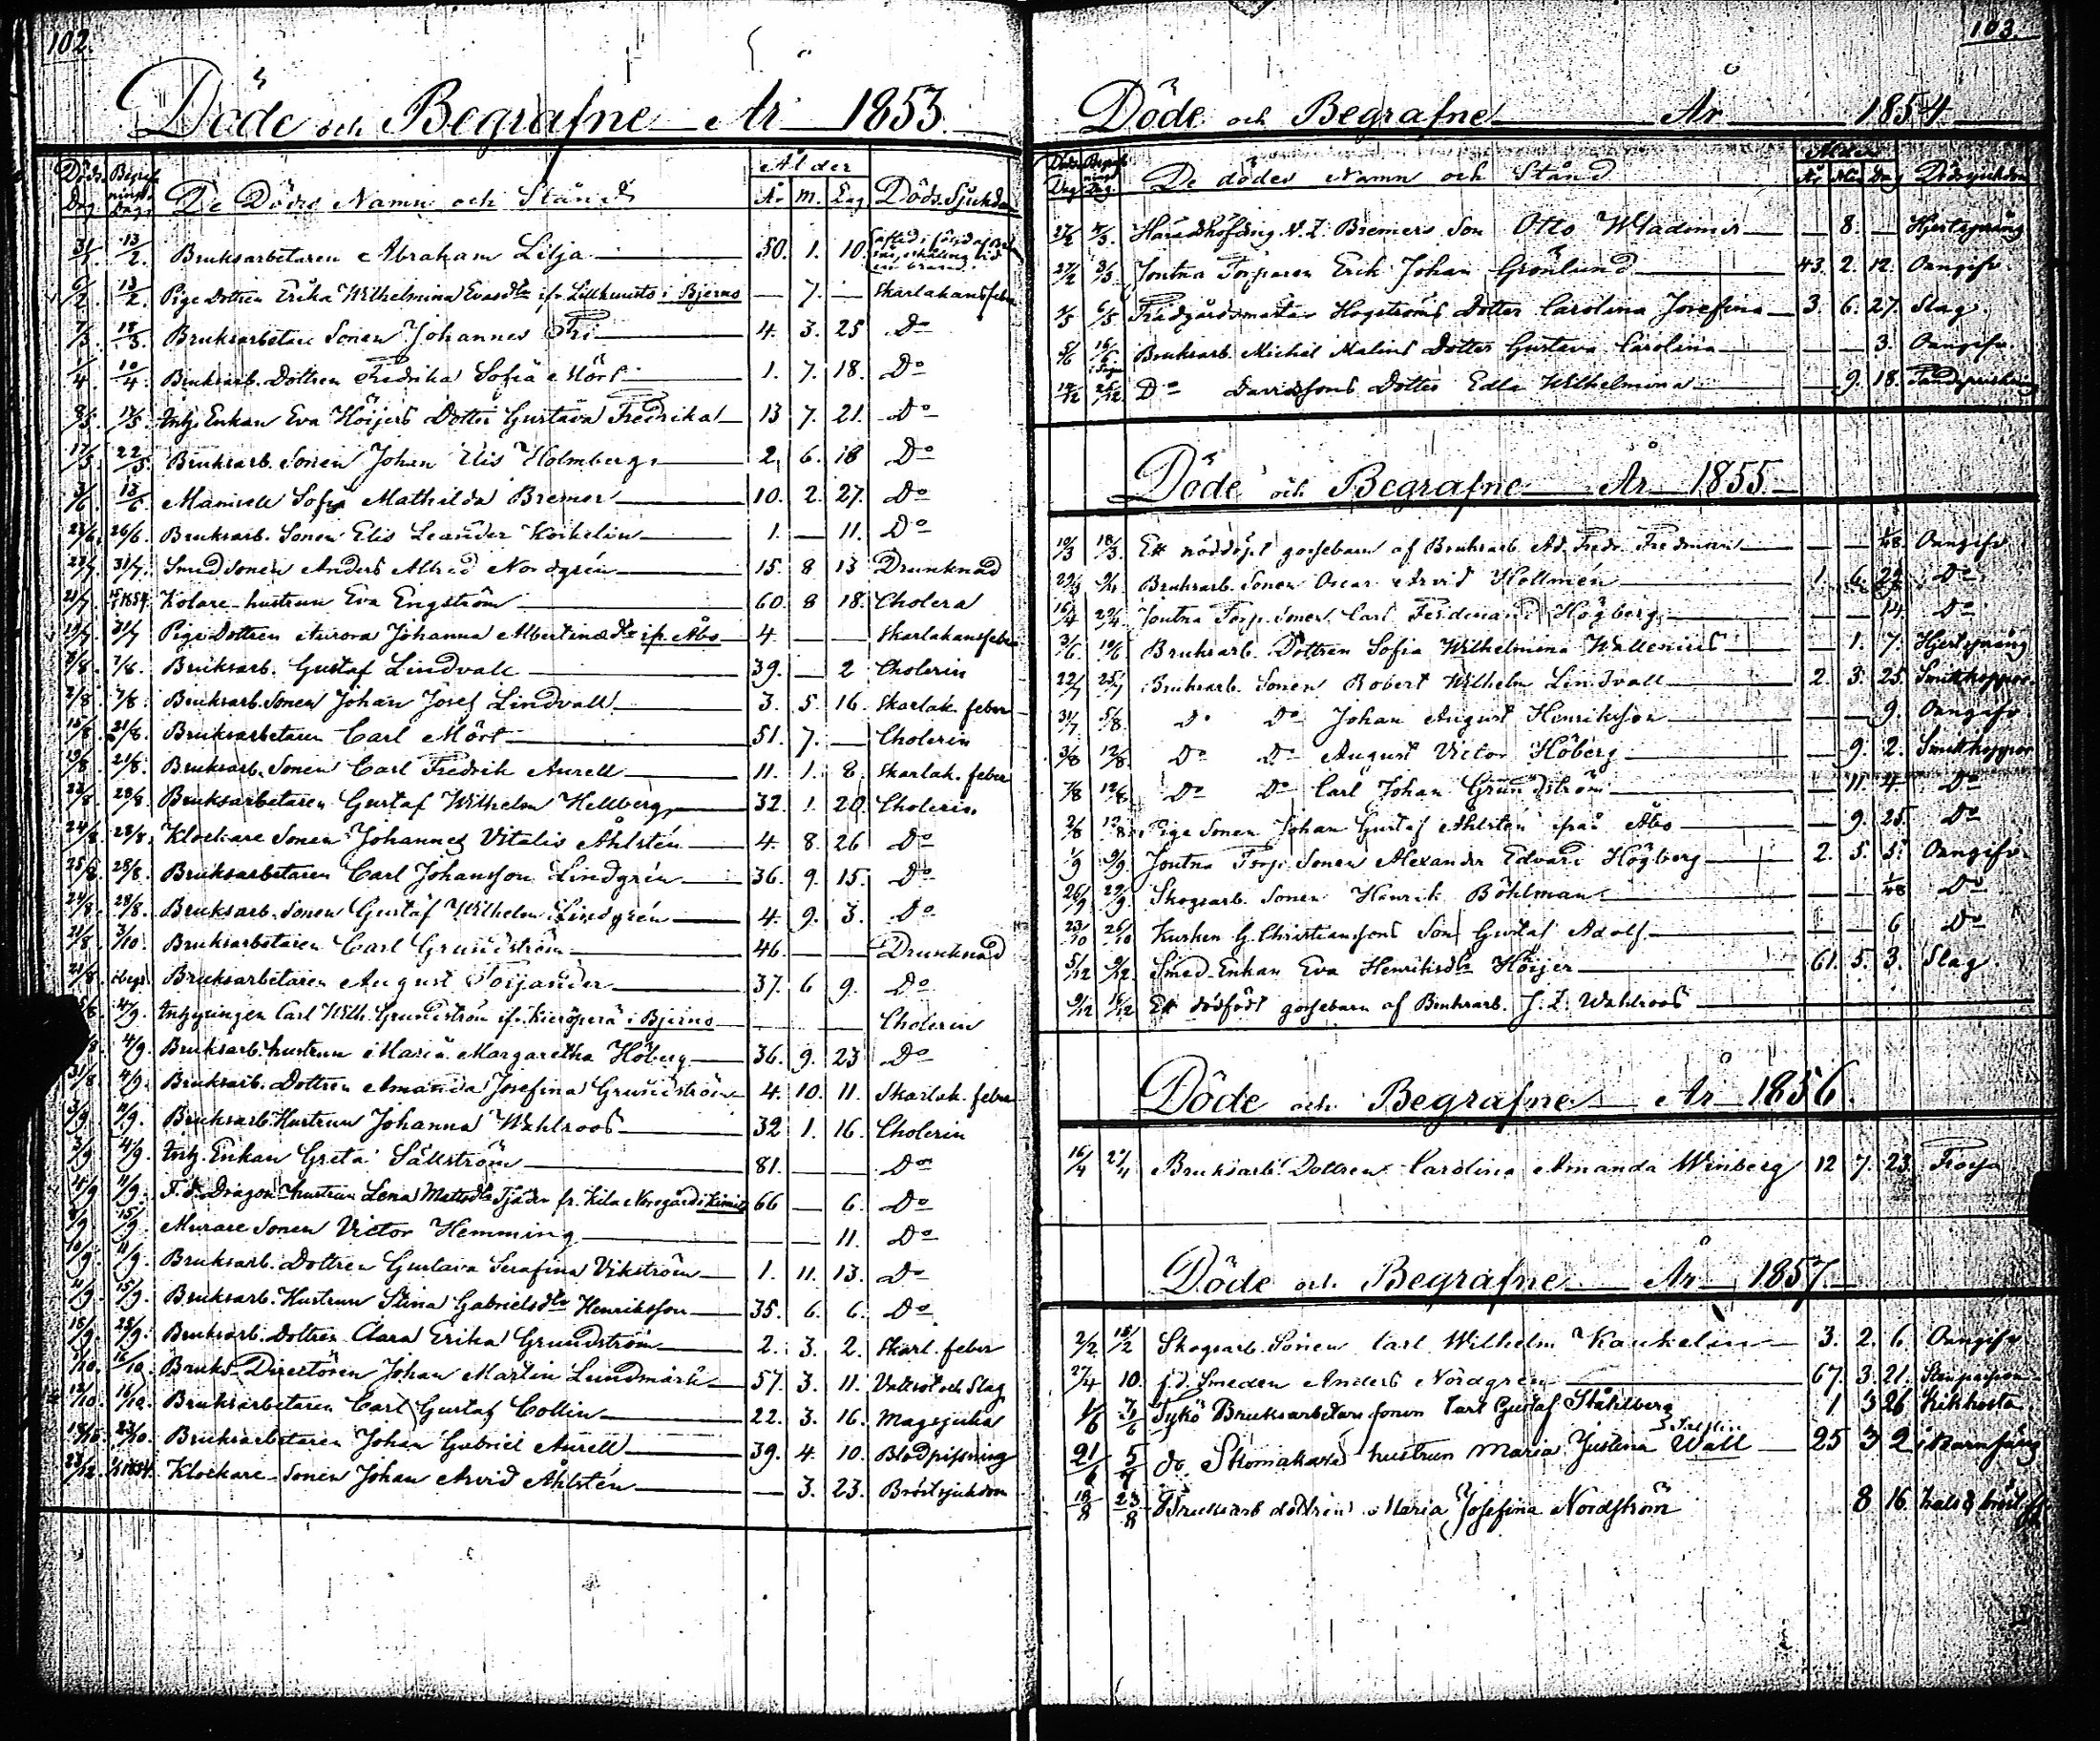 102.
Döde och Begrafne År 1853.
Döds Dag Begrafnings Dag De Dödes Namn och Stånd Ålder År m. Dag Döds Sjukdom
31/1. 13/2. Bruksarbetaren Abraham Lilja 50. 1. 10.
6/2. 13/2. Pige Dottren Erika Wilhelmina Evasdtr ifr. Lillkuusto i Bjerno — 7. — Skarlakansfeber
7/3. 13/3. Bruksarbetare Sonen Johannes Fri 4. 3. 25 Do
1/4. 10/4. Bruksarb. Dottren Fredrika Sofia Mört 1. 7. 18. Do
3/5 15/5. Inhg. Enkan Eva Höijers Dotter Gustava Fredrika 13 7. 21. Do
17/5. 22/5. Bruksarb. Sonen Johan Elis Holmberg 2. 6. 18 Do
3/6. 13/6. Mamsell Sofia Mathilda Bremer 10. 2. 27. Do
23/6. 26/6. Bruksarb. Sonen Elis Leander Koskelin 1. — 11. Do
31/7. Smed sonen Anders Alfred Nordgrén 15. 8 13 Drunknad
21/7. Kolare hustrun Eva Engström 60. 8 18. Cholera
31/7 Pige Dottren Aurora Johanna Albertinædtr ifr. Åbo 4. — — Skarlakansfeber
7/8. Bruksarb. Gustaf Lindvall 39. — 2 Cholerin
7/8. Bruksarb. Sonen Johan Josef Lindvall 3. 5. 16. Skarlak. feber
15/8. 21/8. Bruksarbetaren Carl Mört 51. 7. — Cholerin
19/8. 21/8. Bruksarb. Sonen Carl Fredrik Aurell 11. 1. 8. Skarlak. feber
28/8. Bruksarbetaren Gustaf Wilhelm Hellberg 32. 1. 20. Cholerin
24/8. 28/8. Klockare Sonen Johannes Vitalis Åhlstén 4. 8. 26 Do
25/8. 28/8. Bruksarbetaren Carl Johansson Lindgrén 36. 9. 15. Do
28/8. Bruksarb. Sonen Gustaf Wilhelm Lindgrén 4. 9. 3. Do
21/8. 3/10. Bruksarbetaren Carl Grundström 46. — — Drunknad
21/8. Bruksarbetaren August Foijander 37. 6 9. Do
4/9. Inhysingen Carl Wilh. Grundström ifr. i Bjerno — — — Cholerin
4/9. Bruksarb. hustrun Maria Margaretha Höberg 36. 9. 23 Do
31/8. 4/9. Bruksarb. Dottren Amanda Josefina Grundström 4. 10. 11. Skarlak. feber
3/9. 11/9. Bruksarb. Hustrun Johanna Wahlroos 32 1. 16. Cholerin
3/9 4/9. Inhg. Enkan Greta Sällström 81. — — Do
11/9. F. d. Dragon hustrun Lena Mattsdtr Tjäder fr. Kila Norrgård i Kimito 66 — 6. Do
15/9. Murare Sonen Victor Hemming — — 11. Do
10/9. 11/9. Bruksarb. Dottren Gustava Serafina Vikström 1. 11. 13. Do
11/9. 15/9. Bruksarb. Hustrun Stina Gabrielsdtr Henriksson 35. 6. 6. Do
18/9. 25/9. Bruksarb. Dottren Clara Erika Grundström 2. 3. 2. Skarl. feber
16/10. Bruks Directören Johan Martin Lundmark 57. 3. 11. Vattsot och Slag
12/10. 16/10. Bruksarbetaren Carl Gustaf Collin 22. 3. 16. Magsjuka
18/10. 23/10. Bruksarbetaren Johan Gabriel Aurell 39. 4. 10. Blodpissning
23/12. 1/1 1854. Klockare Sonen Johan Arvid Åhlstén — 3. 23. Bröstsjukdom
103.
Döde och Begrafne År 1854
Döds Dag Begrafnings Dag De dödes Namn och Stånd Ålder År Mån Dag Dödssjukdom
27/2 5/3. Häradshöfding N. I. Bremers Son Otto Wladimir — 8. — Hjertsprång
27/2 5/3. Joutna Torparen Erik Johan Grönlund 43. 2. 12. Oangifv.
Trädgårdsmästar Hogströms Dotter Carolina Josefina 3. 6. 27. Slag.
Bruksarb. Michel Malins Dotter Gustava Carolina — — 3. Oangifv.
19/12 26/12. Do Davidssons Dotter Edla Wilhelmina — 9. 18. Tandsprickning
Döde och Begrafne År 1855
10/3 18/3. Ett nöddöpt gossebarn af Bruksarb. Ad. Fredr. Fredman — — 1/48 Oangifv
Bruksarb. Sonen Oscar Arvid Hollmén 1. 6. Do
16/4 29/4. Joutna Torp. Sonen Carl Ferdinand Högberg — — 14. Do
3/6. 10/6 Bruksarb. Dottren Sofia Wilhelmina Wallenius — 1. 7. Hjertsprång
22/7 25/7 Bruksarb. Sonen Robert Wilhelm Lindvall 2. 3. 25. Smittkoppor
31/7 5/8. Do Do Johan August Henriksson — — 9. Oangifv
3/8 12/8. Do Do August Victor Höberg — 9. 2. Smittkoppor
7/8 12/8. Do Do Carl Johan Grundström — 11. 4 Do
2/8 12/8. Pige Sonen Johan Gustaf Ahlsten ifrån Åbo — 9. 25. Do
1/9 9/9. Joutna Torp. Sonen Alexander Edvard Högberg 2. 5. 5. Oangifv.
26/9 29/9. Skogsarb. Sonen Henrik Böhlman — — 1/48 Do
23/10 26/10 Kusken G. Christianssons Son Gustaf Adolf — — 6 Do
5/12 9/12. Smed Enkan Eva Henriksdtr Höijer 61. 5. 3. Slag.
9/12 16/12 Ett dödfödt gossebarn af Bruksarb. J. I. Wahlroos
Döde och Begrafne År 1856.
16/4 27/4 Bruksarb. Dottren Carolina Amanda Winberg 12 7. 23. Frossa
Döde och Begrafne År 1857.
2/2. 15/2 Skogsarb. Sonen Carl Wilhelm Kaukelin 3. 2. 6. Oangifv
27/4 10. f. d. Smeden Anders Nordgren 67. 3. 21.
1/6 7/6 Tykö Bruksarbetare sonen Carl Gustaf Ståhlberg 1 3 26 Kikhosta
21/6 5/7 do Skomakare hustrun Maria Justina Wall 25 3 2 i Barnsäng
18/8 23/8 Bruksarb dottren Maria Josefina Nordström 8 16 hals & bröst sj.